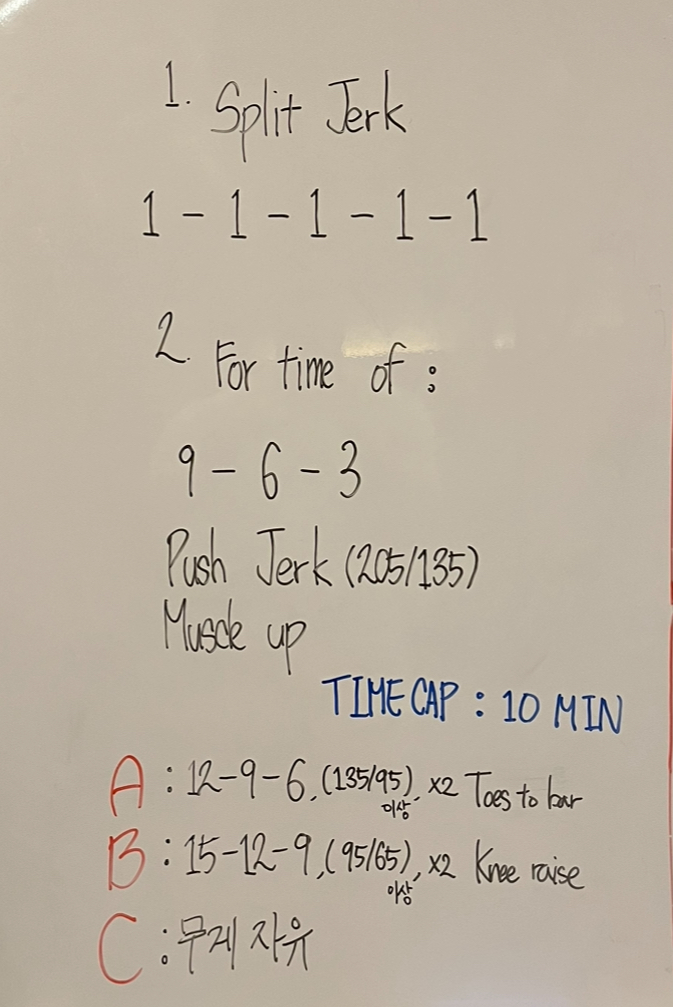 1. Split Jerk
1 - 1 - 1 - 1 - 1
2. For time of :
9 - 6 - 3
Push Jerk (205/135)
Muscle up
TIME CAP : 10 MIN
A : 12-9-6, (135/95), x2 Toes to bar
이상
B : 15-12-9, (95/65), x2 Knee raise
이상
C : 무게 자유